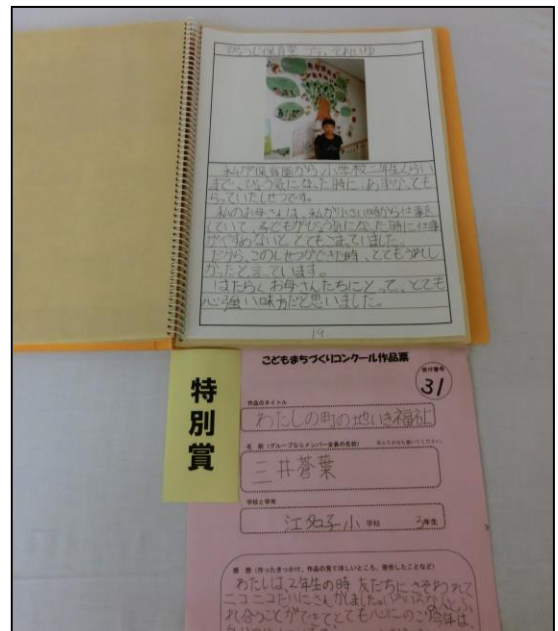 びょうじ保育室
私が保育園から、小学校二年生くらい
まで、びょう気になった時に、あずかっても
らっていたしせつです。
私のお母さんは、私が小さい時から仕事を
していて、子どもがびょう気になった時に仕事
がやすめないと、とてもこまっていました。
だから、このしせつができた時、とてもうれし
かったと言っています。
はたらくお母さんたちにとって、とても
心強い味方だと思いました。
19
特別賞
こどもまちづくりコンクール作品票
受付番号
31
作品のタイトル
わたしの町の地いき福祉
名前(グループならメンバー全員の名前)
三井蒼葉
学校と学年
江名子小 学校 3年生
感想(作ったきっかけ、作品の見てほしいところ、苦労したことなど)
わたしは、2年生の時 友だちに さそわれて
ニコニコたいにさんかしました。
れ合うことができてとても心にのこり今年は、